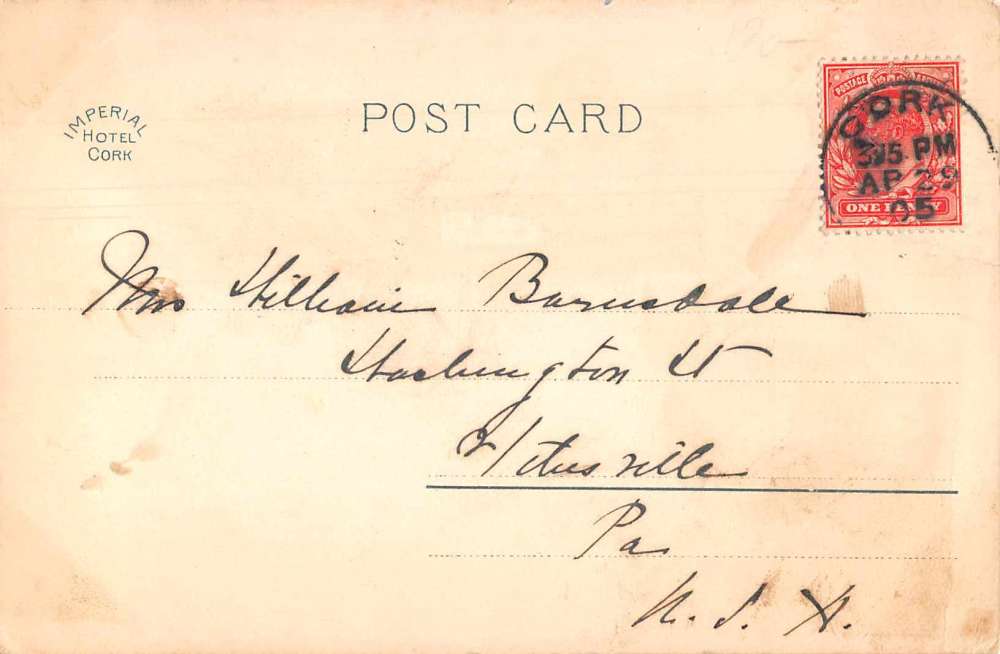 IMPERIAL
HOTEL
CORK
POST CARD
POSTAGE
CORK
3 15 PM
AP 29
05
ONE PENNY
Mrs William Barnsdale
Washington St
Titusville
Pa
U. S. A.